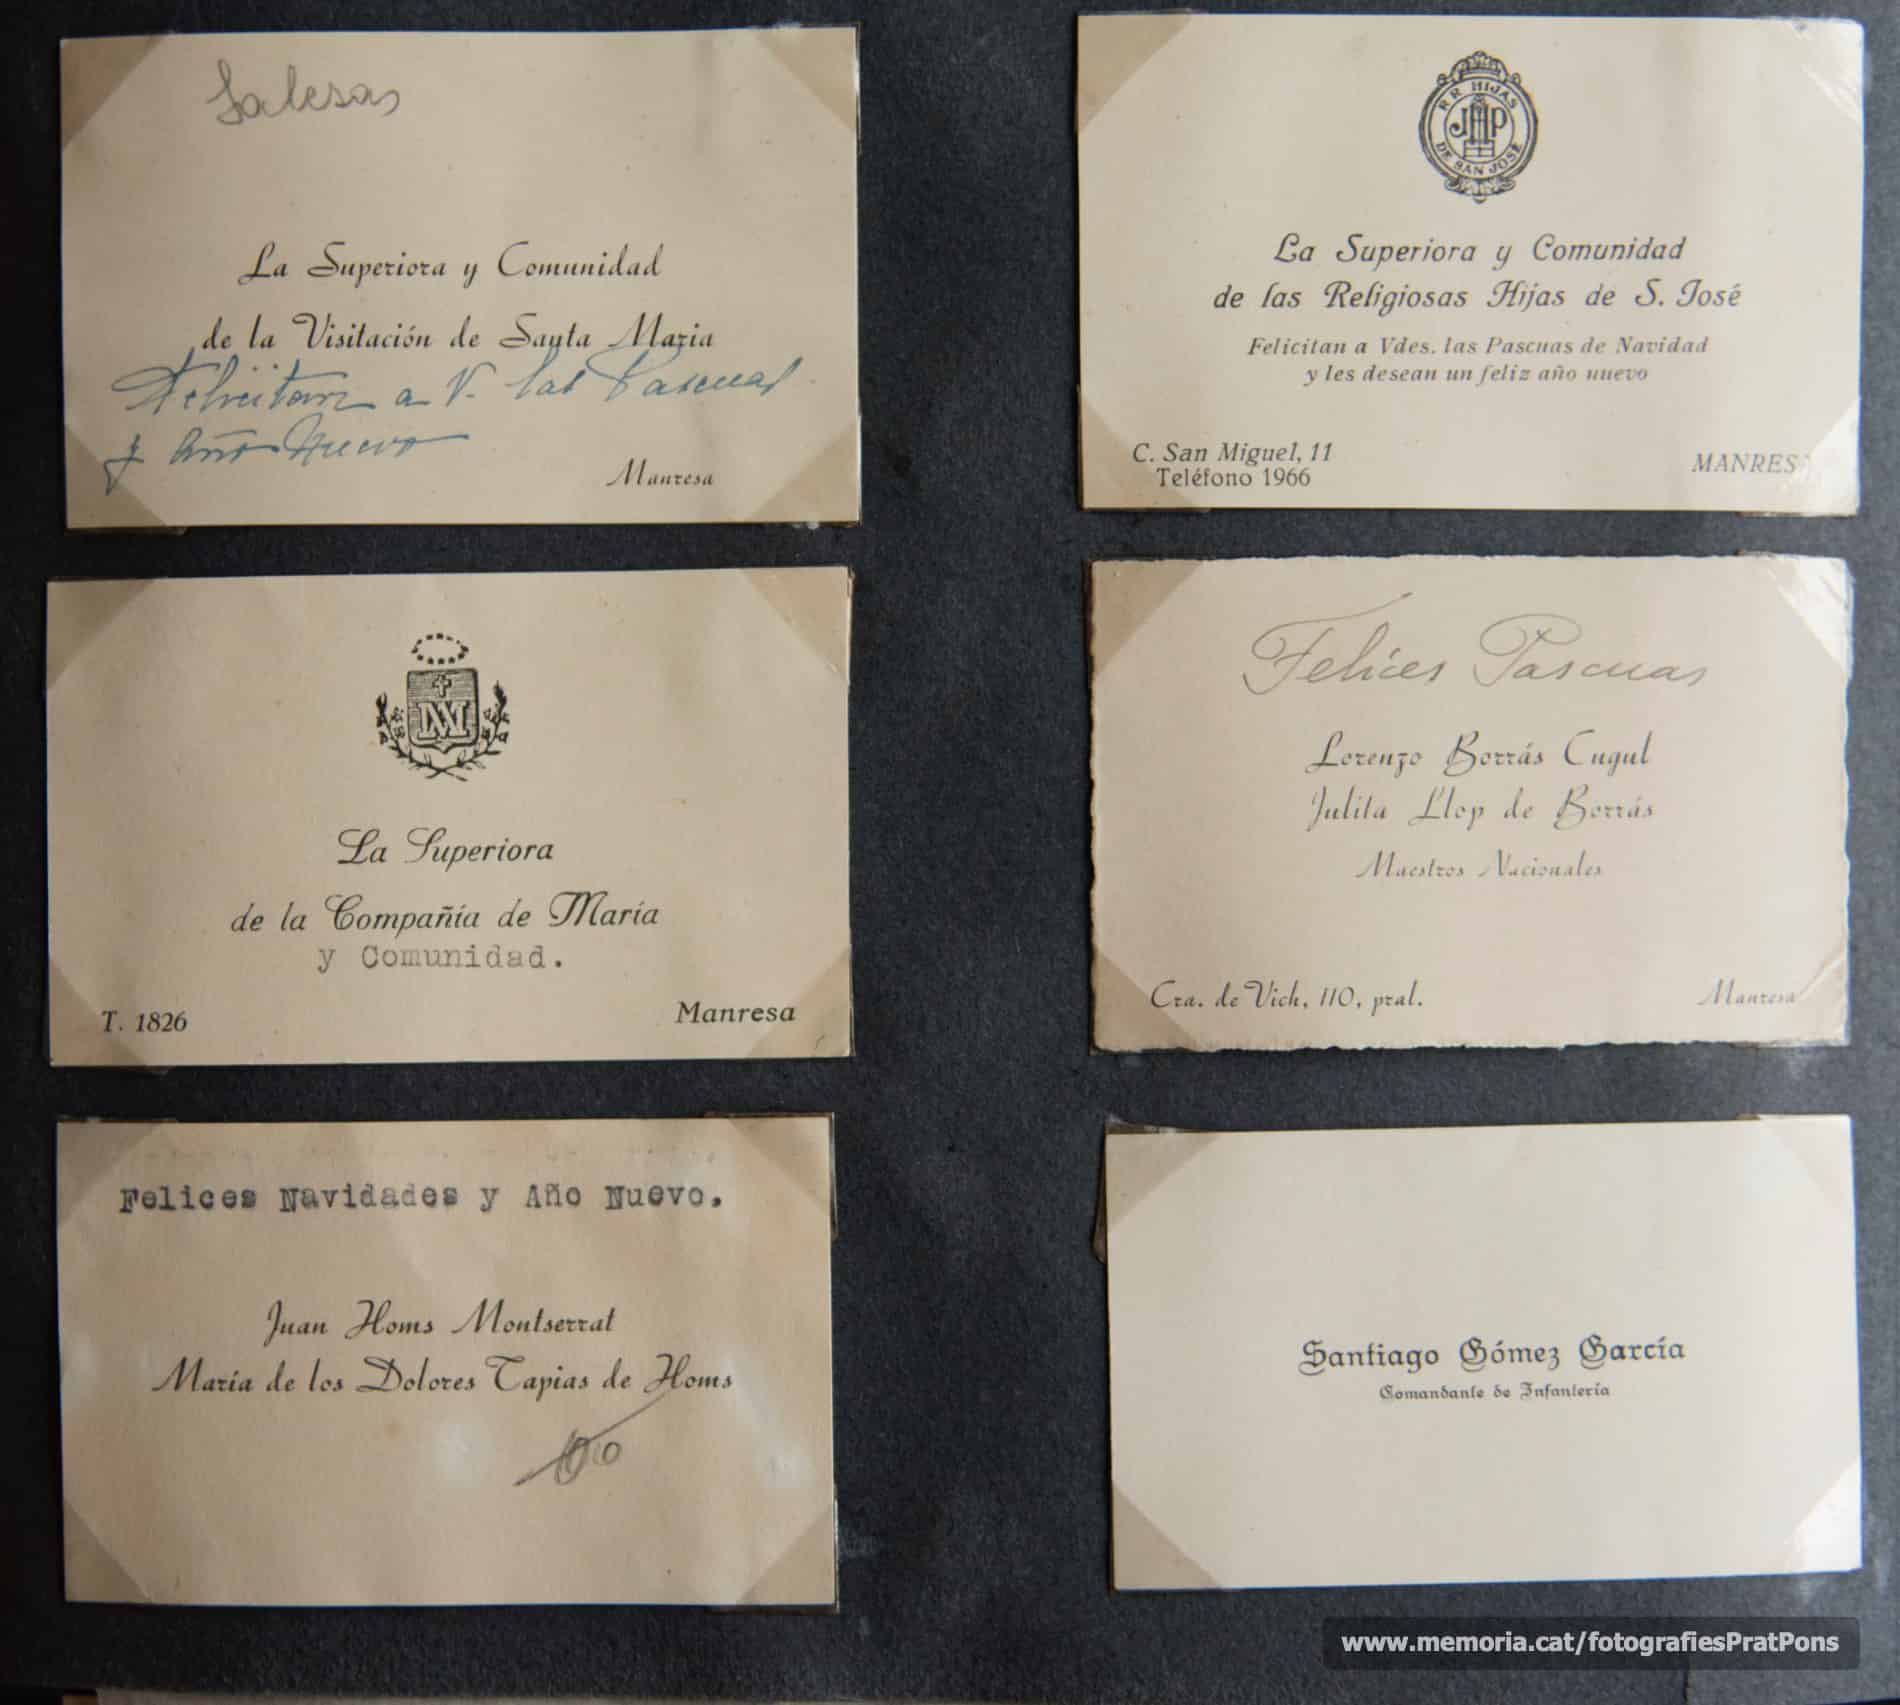 Salesas
La Superiora y Comunidad
de la Visitación de Santa Maria
Felicitan a V. las Pascuas
y Año Nuevo
Manresa
RR HIJAS
JHP
DE SAN JOSÉ
La Superiora y Comunidad
de las Religiosas Hijas de S. José
Felicitan a Vdes. las Pascuas de Navidad
y les desean un feliz año nuevo
C. San Miguel, 11
Teléfono 1966
MANRESA
La Superiora
de la Compañía de María
y Comunidad.
T. 1826
Manresa
Felices Pascuas
Lorenzo Borrás Cugul
Julita Llop de Borrás
Maestros Nacionales
Cra. de Vich, 110, pral.
Manresa
Felices Navidades y Año Nuevo.
Juan Homs Montserrat
María de los Dolores Tapias de Homs
Santiago Gómez García
Comandante de Infantería
www.memoria.cat/fotografiesPratPons